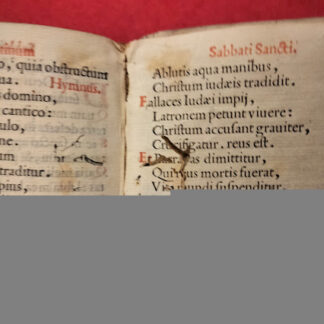 o, quia obstructum
na. Hymnus.
domino,
cantico:
ulo,
ne.
um
traditur.
pius,
Sabbati Sancti.
Ablutis aqua manibus,
Christum iudæis tradidit.
Fallaces Iudæi impij,
Latronem petunt viuere:
Christum accusant grauiter,
Crucifigatur. reus est.
Et dimittitur,
Qui mortis fuerat,
Vita mundi suspenditur,